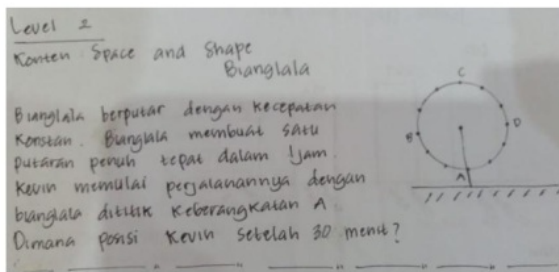 Level 2
Konten Space and Shape
Bianglala
Bianglala berputar dengan kecepatan
konstan. Bianglala membuat satu
putaran penuh tepat dalam 1jam.
Kevin memulai perjalanannya dengan
bianglala dititik keberangkatan A
Dimana posisi Kevin setelah 30 menit?
C
B
D
A